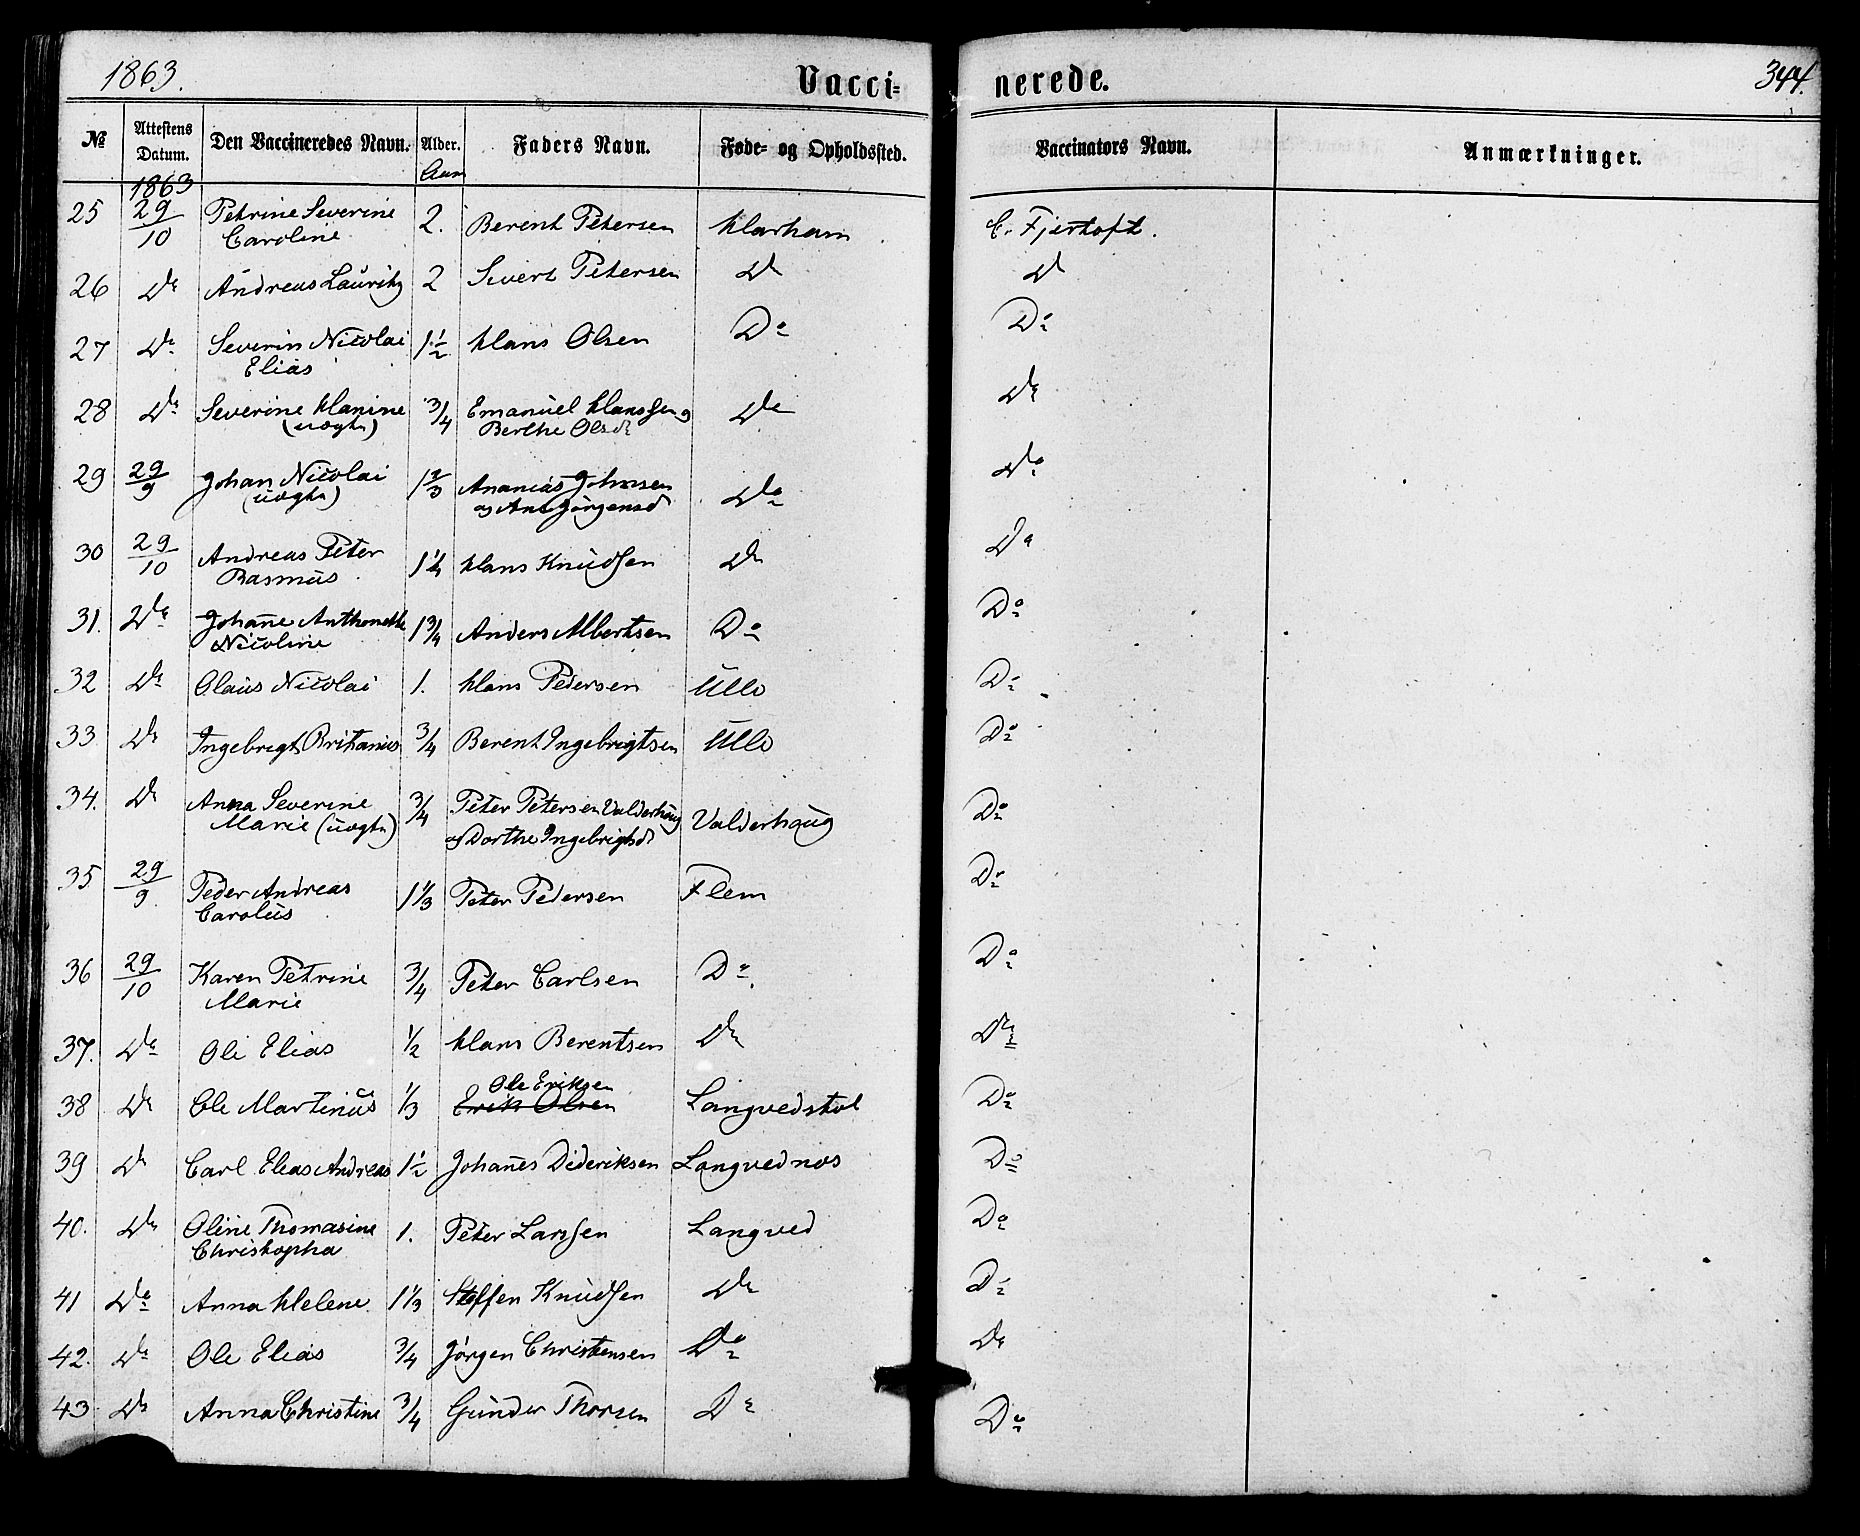 1863.
Vacci=
nerede.
344.
№
Attestens Datum.
Den Vaccineredes Navn.
Alder.
Faders Navn.
Føde- og Opholdssted.
Vaccinators Navn.
Anmærkninger.
1863
Aar
25 29/10 Petrine Severine 2. Berent Petersen Harham C. Fjertoft.
Caroline
26 Do Andreas Lauritz 2 Sivert Petersen Do Do
27 Do Severin Nicolai 1 1/2 Hans Olsen Do Do
Elias
28 Do Severine Hanine 3/4 Emanuel Hanssen og Do Do
(uægte) Berthe Olsdr
29 29/9 Johan Nicolai 1 2/3 Ananias Johnsen Do Do
(uægte) og Ane Jørgensd
30 29/10 Andreas Peter 1 1/4 Hans Knudsen Do Do
Rasmus
31. Do Johanne Anthonette 1 3/4 Anders Albertsen Do Do
Nicoline
32 Do Olaus Nicolai 1. Hans Pedersen Ulla Do
33 Do Ingebregt Britanius 3/4 Berent Ingebrigtsen Ulla Do
34. Do Anna Severine 3/4 Peter Petersen Valderhaug Valderhaug Do
Marie (uægte) og Dorthe Ingebrigtsd
35 29/9 Peder Andreas 1 1/3 Peter Pedersen Flem Do
Carolus
36 29/10 Karen Petrine 3/4 Peter Carlsen Do Do
Marie
37. Do Ole Elias 1/2 Hans Berentsen Do Do
Ole Eriksen
38 Do Ole Martinus 1/3 Erik Olsen Langvedstol Do
39 Do Carl Elias Andreas 1 1/2 Johannes Dideriksen Langvednæs Do
40. Do Oline Thomasine 1. Peter Larssen Langved Do
Christopha
41 Do Anna Helene 1 1/3 Steffen Knudsen Do Do
42. Do Ole Elias 3/4 Jørgen Christensen Do Do
43 Do Anna Christine 3/4 Gunder Thorsen Do Do